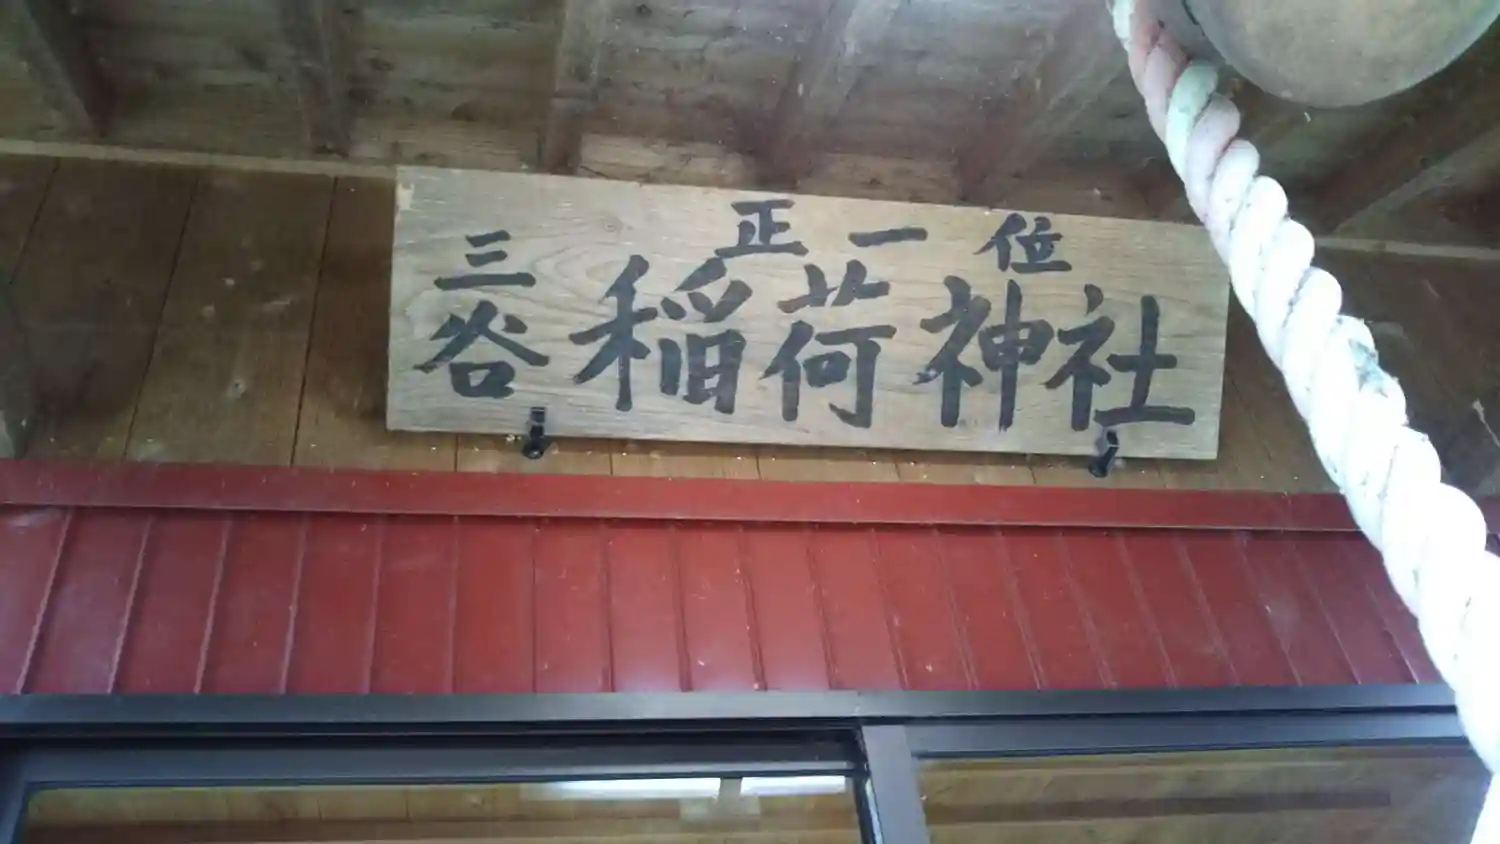 正一位
三谷稲荷神社